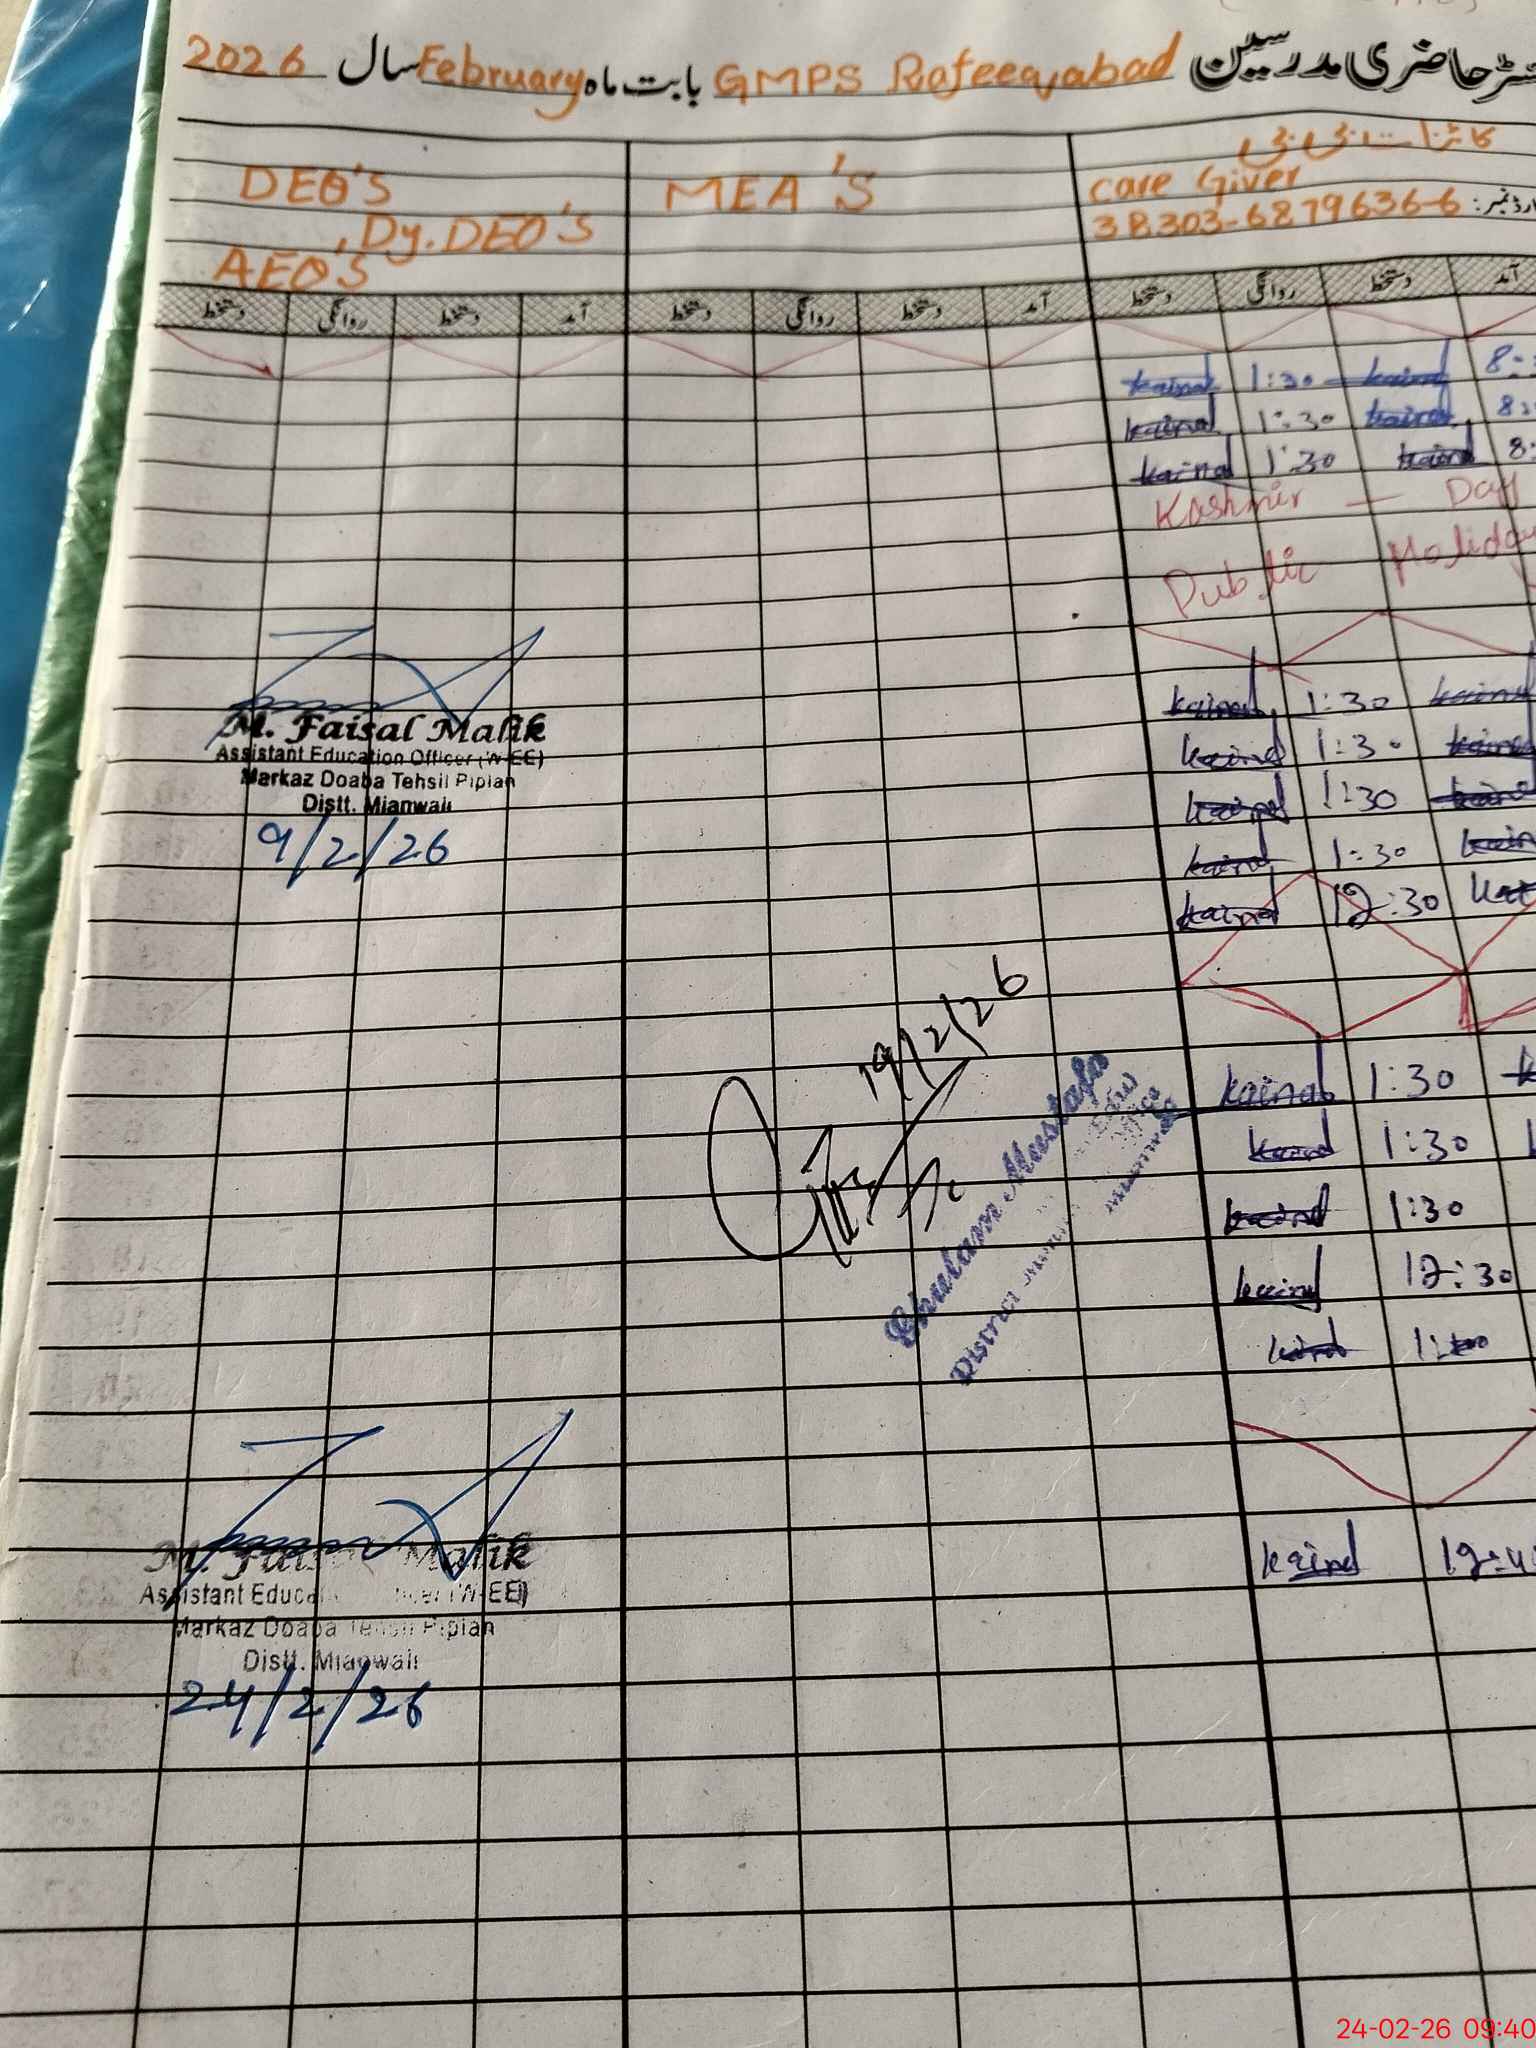 رجسٹر حاضری مدرسین GMPS Rafeeqabad بابت ماہ February سال 2026
DEO'S
, Dy. DEO'S
AEO'S
MEA'S
Care Giver
38303-6879636-6
آمد دستخط روانگی دستخط آمد دستخط روانگی دستخط آمد دستخط روانگی دستخط
kainat 1:30 kainat 8:
kainat 1:30 kainat 8:
kainat 1:30 kainat 8:
Kashmir — Day
Public Holiday
kainat 1:30 kainat
kainat 1:30 kainat
kainat 1:30 kainat
kainat 1:30 kainat
kainat 12:30 kainat
kainat 1:30
kainat 1:30
kainat 1:30
kainat 12:30
kainat
kainat 12:4
M. Faisal Malik
Assistant Education Officer (W-EE)
Markaz Doaba Tehsil Piplan
Distt. Mianwali
9/2/26
19/2/26
Ghulam Mustafa
District
Mianwali
M. Faisal Malik
Assistant Education Officer (W-EE)
Markaz Doaba Tehsil Piplan
Distt. Mianwali
24/2/26
24-02-26 09:40